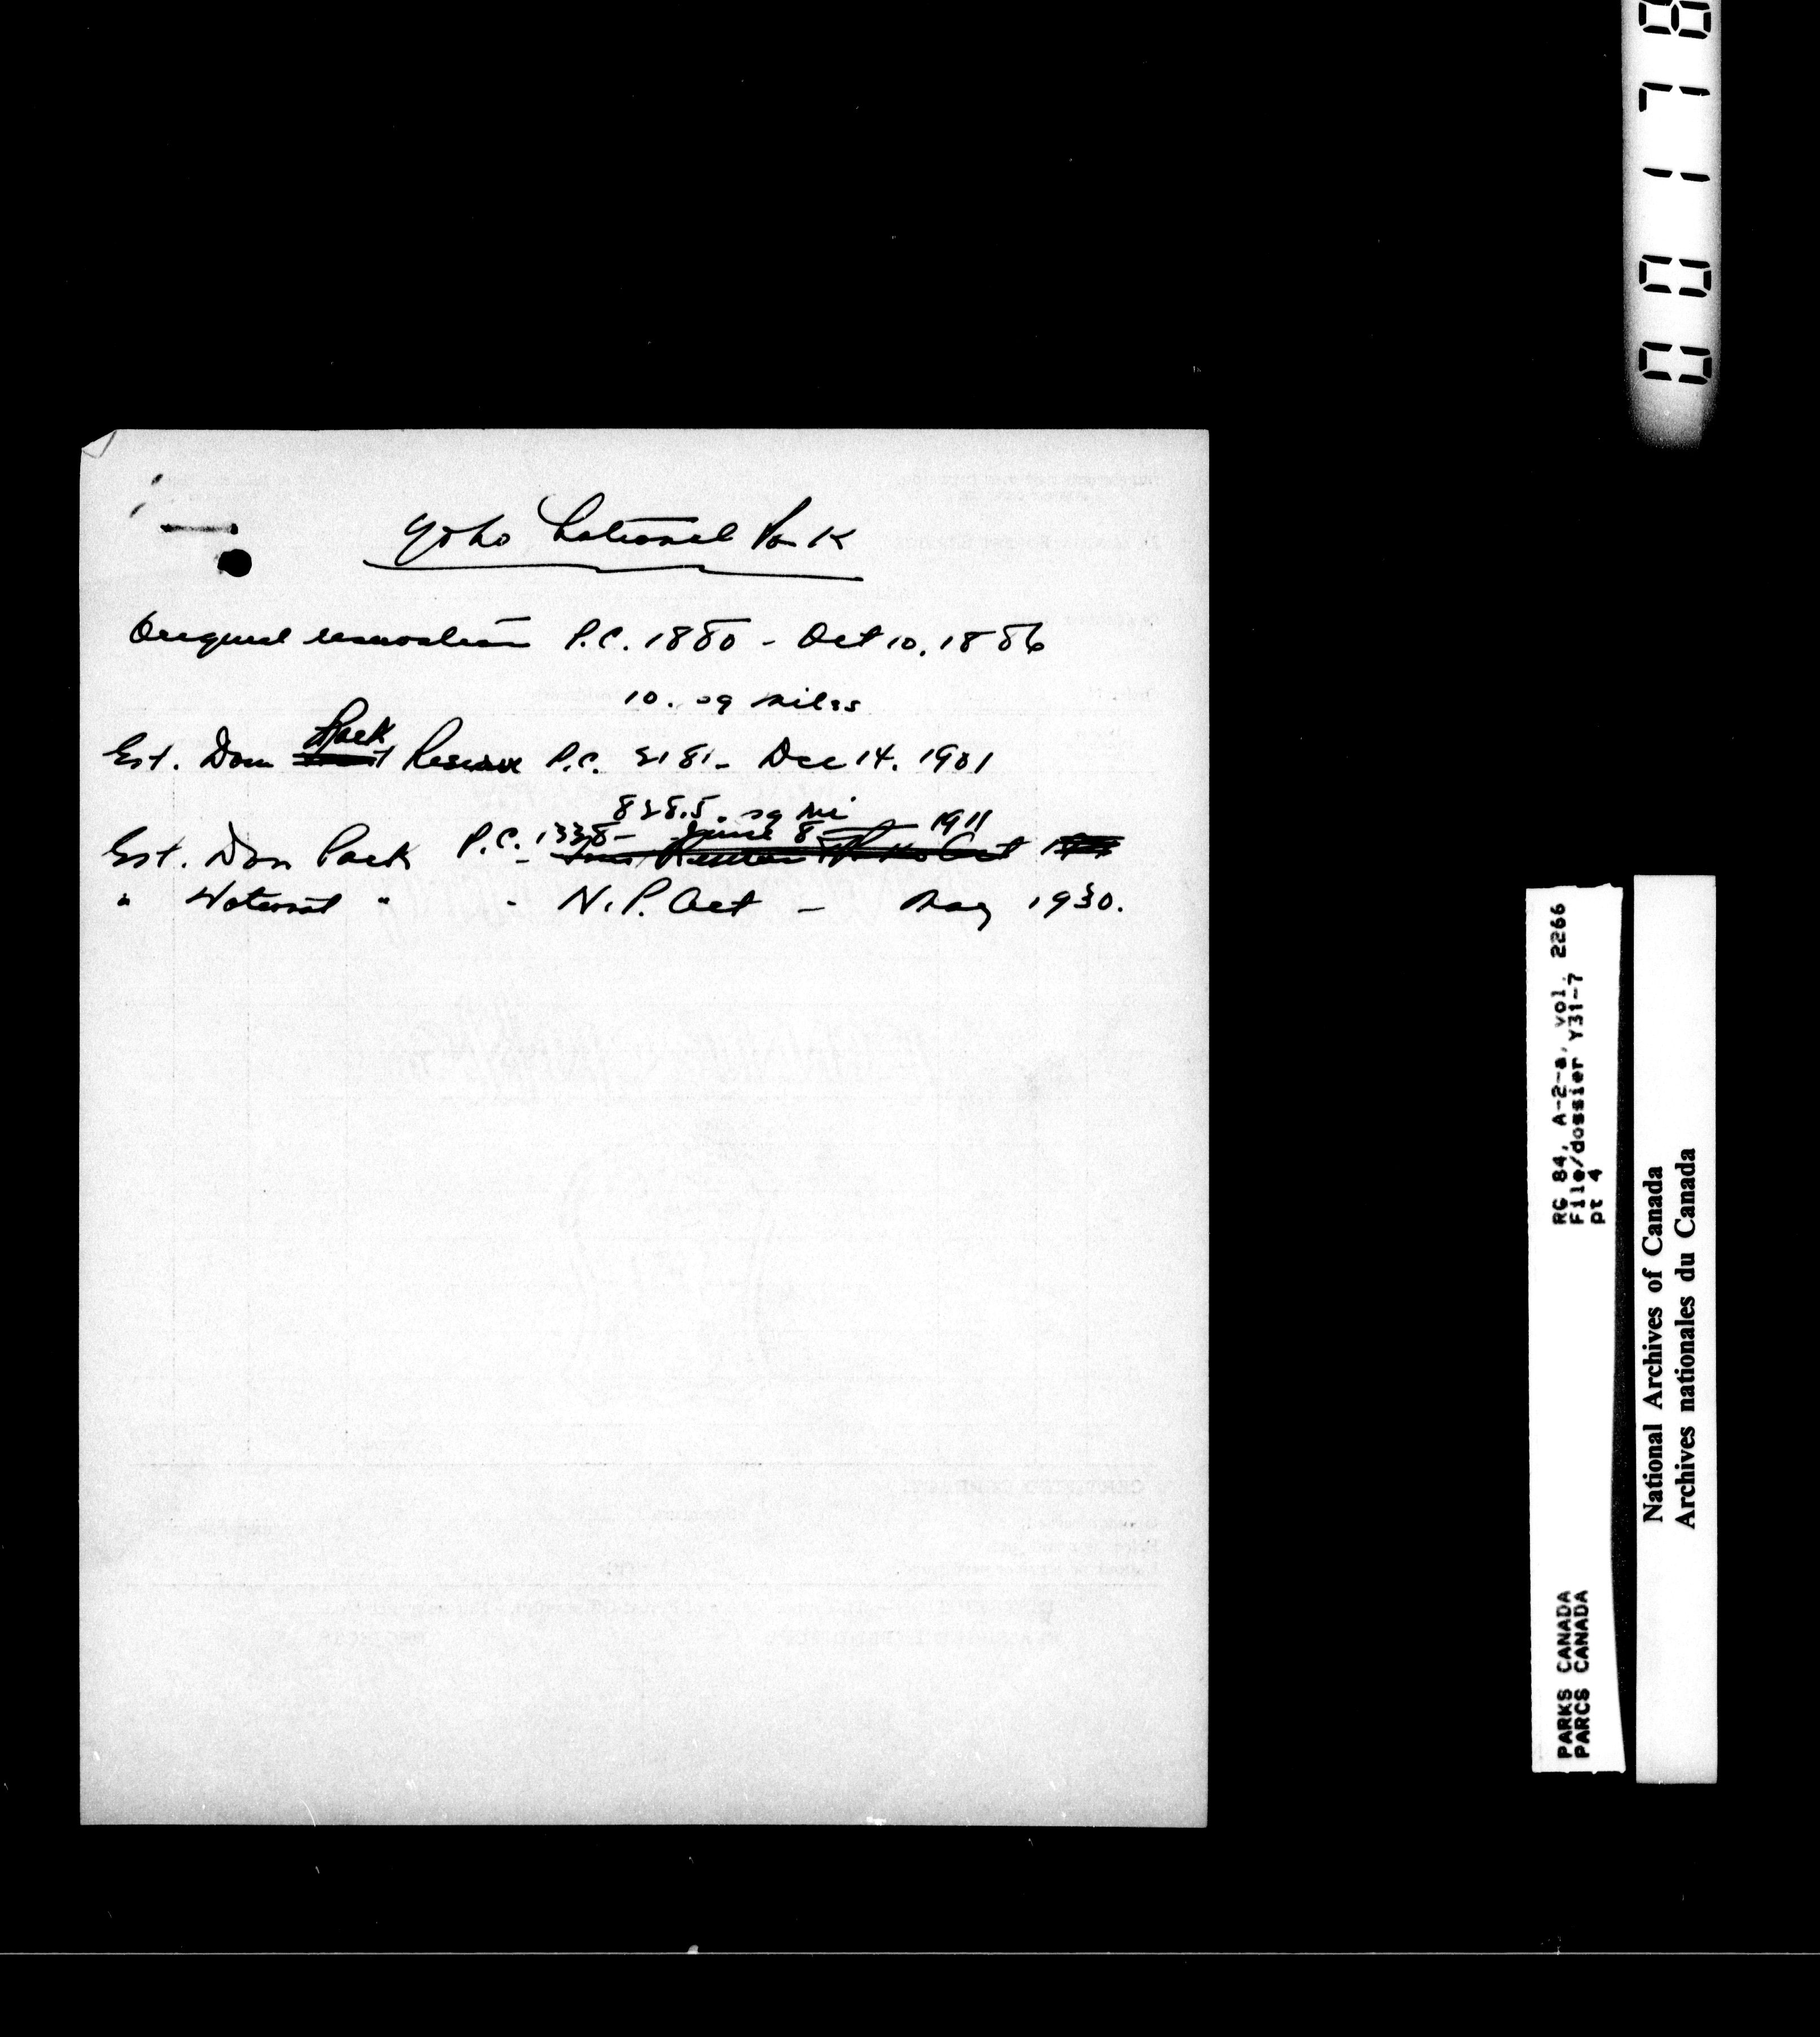 Yoho National Park
Original reservation P.C. 1880 - Oct 10, 1886
10. sq miles
Park
Est. Dom Reserve P.C. 2181 - Dec 14. 1901
828.5. sq mi
P.C. 1338 - June 8 1911
Est. Dom Park
" National " - N.P. Act - May 1930.
00178
RG 84, A-2-a, vol. 2266
File/dossier Y31-7
pt 4
PARKS CANADA
PARCS CANADA
National Archives of Canada
Archives nationales du Canada